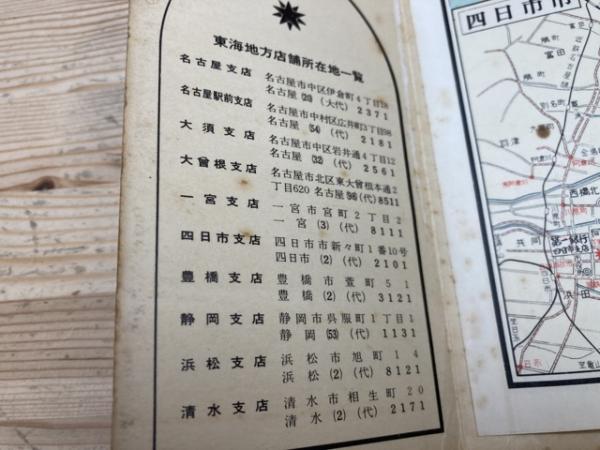 東海地方店舗所在地一覧
名古屋支店 名古屋市中区伊倉町4丁目28
名古屋 (23) (大代) 2371
名古屋駅前支店 名古屋市中村区広井町3丁目98
名古屋 (54) (代) 2181
大須支店 名古屋市中区岩井通4丁目12
名古屋 (32) (代) 2561
大曽根支店 名古屋市北区東大曽根本通2
丁目620 名古屋 (98) (代) 8511
一宮支店 一宮市宮町2丁目2
一宮 (3) (代) 8111
四日市支店 四日市市新々町1番10号
四日市 (2) (代) 2101
豊橋支店 豊橋市萱町51
豊橋 (2) (代) 3121
静岡支店 静岡市呉服町1丁目1
静岡 (53) (代) 1131
浜松支店 浜松市旭町14
浜松 (2) (代) 8121
清水支店 清水市相生町20
清水 (2) (代) 2171
四日市市
富田
別名町
羽津
西橋北
共同
第一銀行
四日市支店
浜田
至亀山